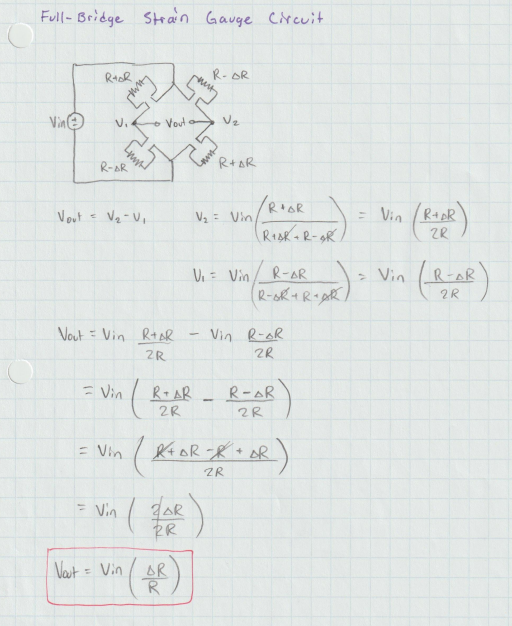 Full-Bridge Strain Gauge Circuit
R+ΔR R-ΔR
Vin ± V₁ Vout V₂
R-ΔR R+ΔR
Vout = V₂-V₁ V₂ = Vin ((R+ΔR)/(R+ΔR+R-ΔR)) = Vin ((R+ΔR)/2R)
V₁ = Vin ((R-ΔR)/(R-ΔR+R+ΔR)) = Vin ((R-ΔR)/2R)
Vout = Vin (R+ΔR)/2R - Vin (R-ΔR)/2R
= Vin ((R+ΔR)/2R - (R-ΔR)/2R)
= Vin ((R+ΔR-R+ΔR)/2R)
= Vin (2ΔR/2R)
Vout = Vin (ΔR/R)